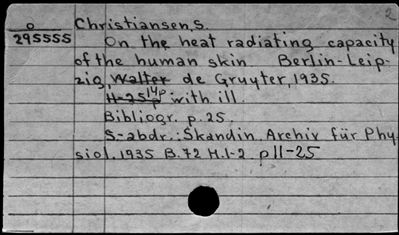 2
o Christiansen, S.
295555 On the heat radiating capacity
of the human skin Berlin-Leip-
zig, Walter de Gruyter, 1935.
H-25 14p with ill.
Bibliogr. p. 25.
S-abdr.: Skandin. Archiv für Phy-
siol. 1935 B.72 H.1-2 p 11-25